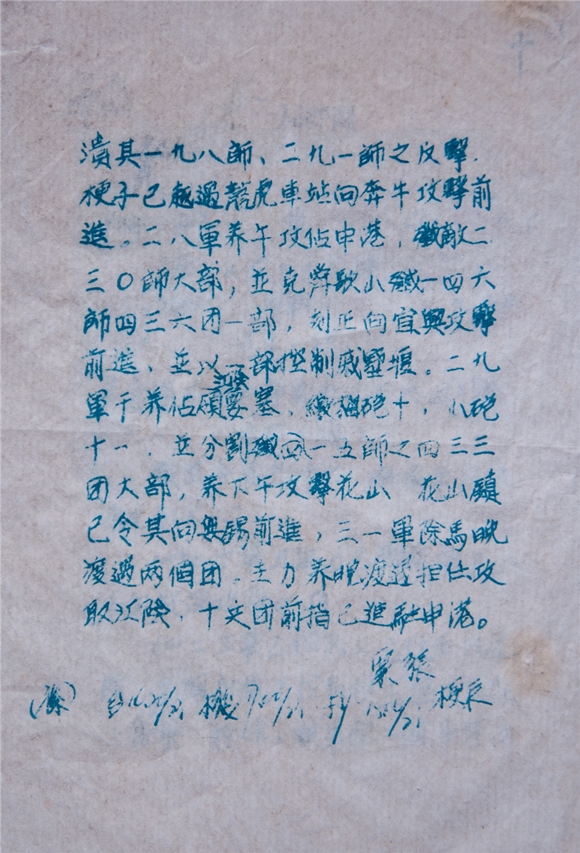 潰其一九八師、二九一師之反擊.
梗子已越過龍虎車站向奔牛攻擊前
進。二八軍养午攻佔申港，殲敵二
三〇師大部，並克舜歌山殲一四六
師四三六团一部，刻正向宜興攻擊
前進，並以一部控制戚墅堰。二九
江陰
軍于养佔領要塞，繳榴砲十，八砲
十一．並分割殲 一五師之四三三
团大部，养下午攻擊花山 花山鎮
已令其向無錫前進，三一軍除馬晚
渡過兩個团．主力养晚渡過担任攻
取江陰，十文团前指已進駐申港。
粟張
梗辰